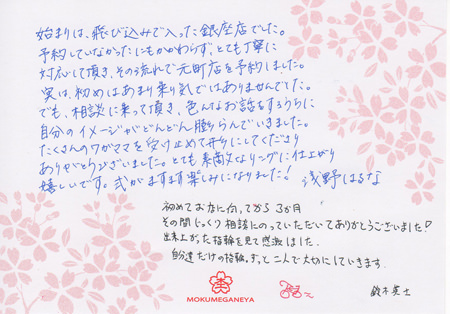 始まりは、飛び込みで入った銀座店でした。
予約していなかったにもかかわらず、とても丁寧に
対応して頂き、その流れで元町店を予約しました。
実は、初めはあまり乗り気ではありませんでした。
でも、相談に乗って頂き、色んなお話をするうちに
自分のイメージがどんどん膨らんでいきました。
たくさんのワガママを受け止めて形にしてくださり
ありがとうございました。とても素敵なリングに仕上がり
嬉しいです。式がますます楽しみになりました! 浅野はるな
初めてお店に伺ってから3か月
その間じっくり相談にのっていただいてありがとうございました♡
出来上がった指輪を見て感激しました。
自分達だけの指輪。ずっと二人で大切にしていきます。
MOKUMEGANEYA
鈴木英士